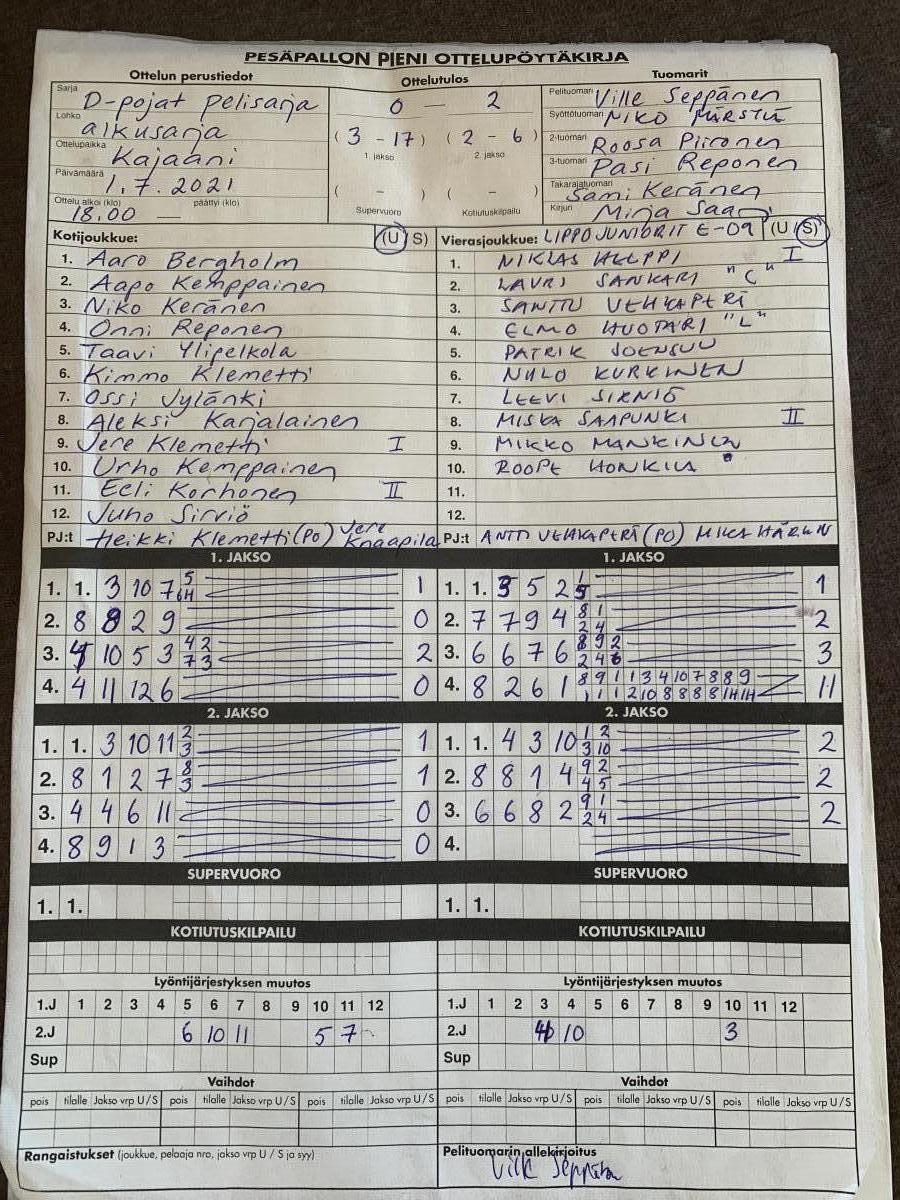 PESÄPALLON PIENI OTTELUPÖYTÄKIRJA
Ottelun perustiedot
Ottelutulos
Tuomarit
Sarja D-pojat pelisarja
Lohko alkusarja
Ottelupaikka Kajaani
Päivämäärä 1.7.2021
Ottelu alkoi (klo) 18.00 — päättyi (klo)
0 — 2
(3 - 17) (2 - 6)
1. jakso 2. jakso
( - ) ( - )
Supervuoro Kotiutuskilpailu
Pelituomari Ville Seppänen
Syöttötuomari NIKO
2-tuomari Roosa Piironen
3-tuomari Pasi Reponen
Takarajatuomari Sami Keränen
Kirjuri Mirja
Kotijoukkue: (U S)
1. Aaro Bergholm
2. Aapo Kemppainen
3. Niko Keränen
4. Onni Reponen
5. Taavi Ylipelkola
6. Kimmo Klemetti
7. Ossi Jylänki
8. Aleksi Karjalainen
9. Jere Klemetti I
10. Urho Kemppainen
11. Eeli Korhonen II
12. Juho Sirviö
PJ:t Heikki Klemetti (PO) Jere Knaapila
Vierasjoukkue: LIPPO JUNIORIT E-09 (U S)
1. NIKLAS I
2. LAURI SANKARI "C"
3. SANTTU VEHKAPERÄ
4. ELMO HUOTARI "L"
5. PATRIK JOENSUU
6. NIILO KURKINEN
7. LEEVI SIRNIÖ
8. MISKA SAAPUNKI II
9. MIKKO MANKINEN
10. ROOPE HONKILA
11.
12.
PJ:t ANTTI VEHKAPERÄ (PO) MIKA
1. JAKSO
1. 1. 3 10 7 5 1
2. 8 8 2 9 0
3. 4 10 5 3 4 2 7 3 2
4. 4 11 12 6 0
1. JAKSO
1. 1. 3 5 2 1 5 1
2. 7 7 9 4 8 1 2 4 2
3. 6 6 7 6 8 9 2 2 4 6 3
4. 8 2 6 1 8 9 1 1 3 4 10 7 8 8 9 11
2. JAKSO
1. 1. 3 10 11 2 3 1
2. 8 1 2 7 8 3 1
3. 4 4 6 11 0
4. 8 9 1 3 0
2. JAKSO
1. 1. 4 3 10 1 2 3 10 2
2. 8 8 1 4 9 2 4 5 2
3. 6 6 8 2 9 1 2 4 2
4.
SUPERVUORO
1. 1.
SUPERVUORO
1. 1.
KOTIUTUSKILPAILU
KOTIUTUSKILPAILU
Lyöntijärjestyksen muutos
1.J 1 2 3 4 5 6 7 8 9 10 11 12
2.J 6 10 11 5 7
Sup
Lyöntijärjestyksen muutos
1.J 1 2 3 4 5 6 7 8 9 10 11 12
2.J 4 10 3
Sup
Vaihdot
pois tilalle Jakso vrp U/S pois tilalle Jakso vrp U/S pois tilalle Jakso vrp U/S
Vaihdot
pois tilalle Jakso vrp U/S pois tilalle Jakso vrp U/S pois tilalle Jakso vrp U/S
Rangaistukset (joukkue, pelaaja nro, jakso vrp U / S ja syy)
Pelituomarin allekirjoitus
Ville Seppänen